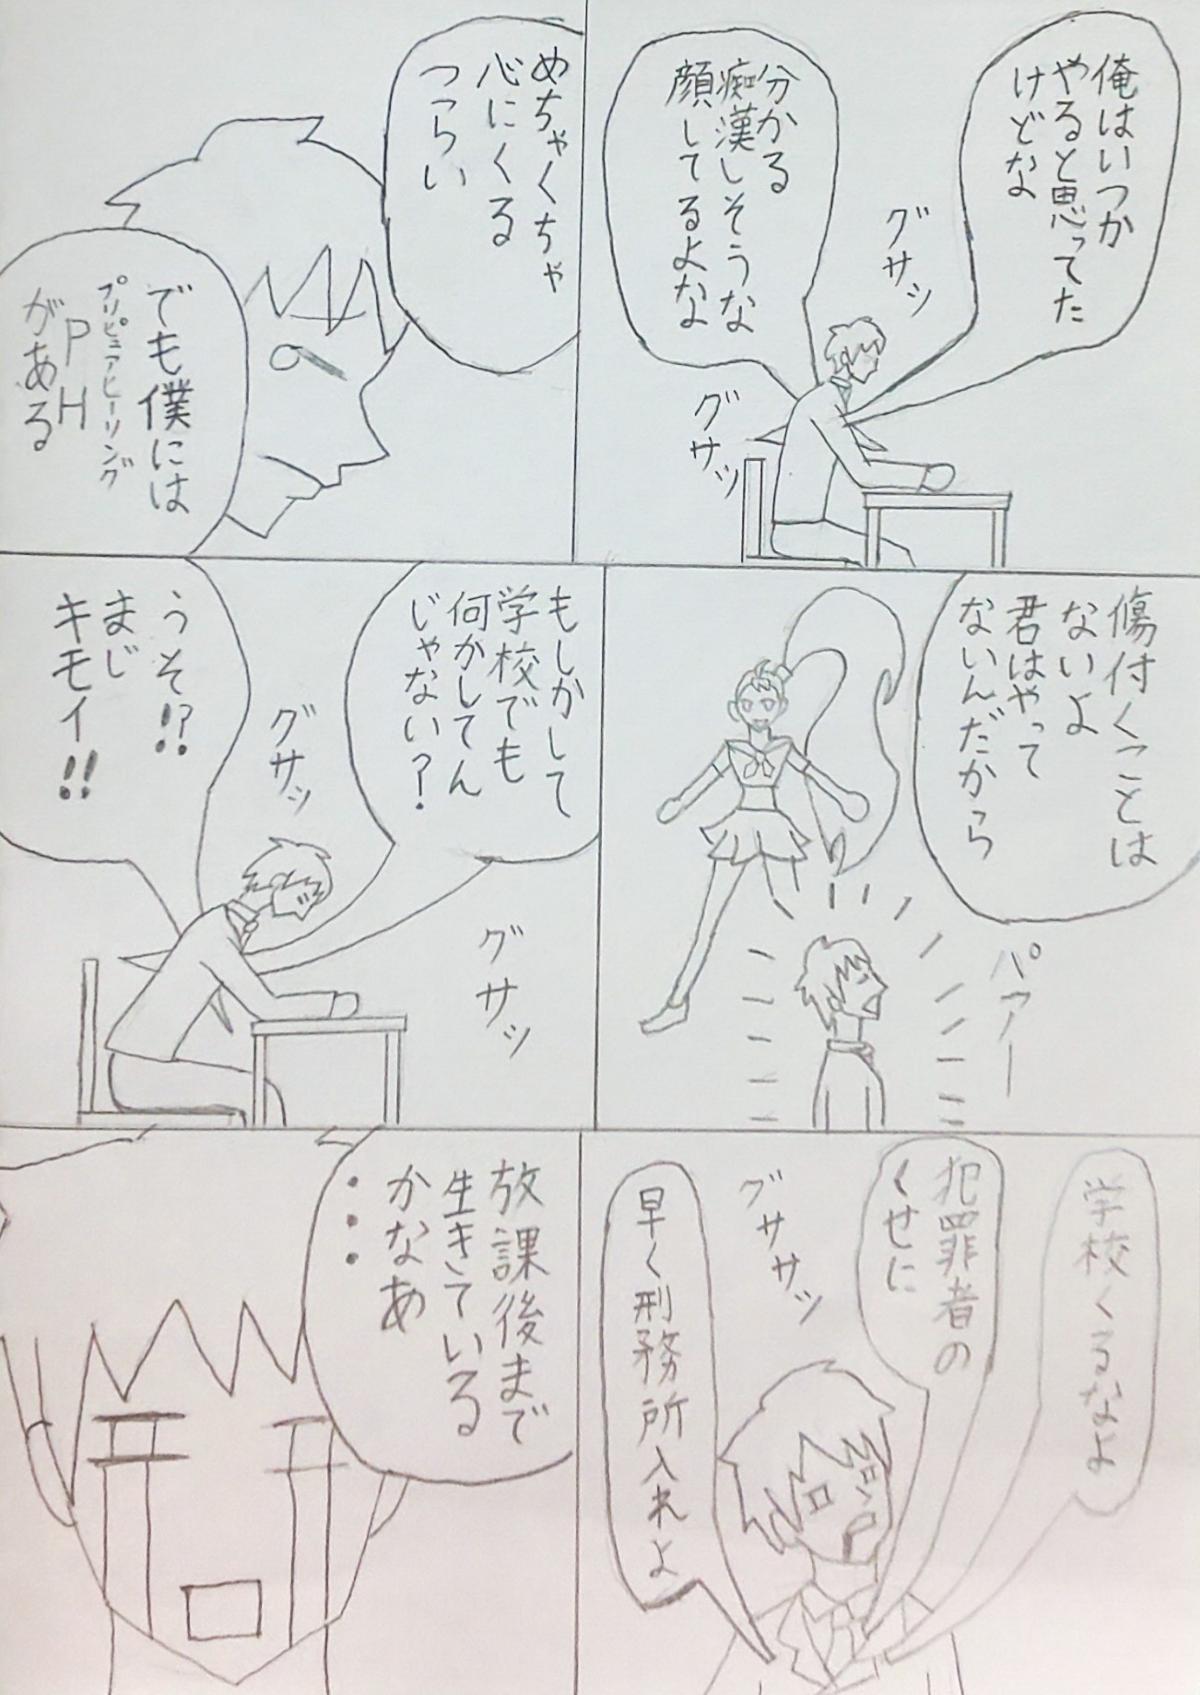 俺はいつか
やると思ってた
けどな
グサッ
分かる
痴漢しそうな
顔してるよな
グサッ
めちゃくちゃ
心にくる
つらい
でも僕には
プリピュアヒーリング
PH
がある
傷付くことは
ないよ
君はやって
ないんだから
パァー
もしかして
学校でも
何かしてん
じゃない?
グサッ
うそ!?
まじ
キモイ!!
グサッ
学校くるなよ
犯罪者の
くせに
グササッ
早く刑務所入れよ
放課後まで
生きている
かなあ
・・・